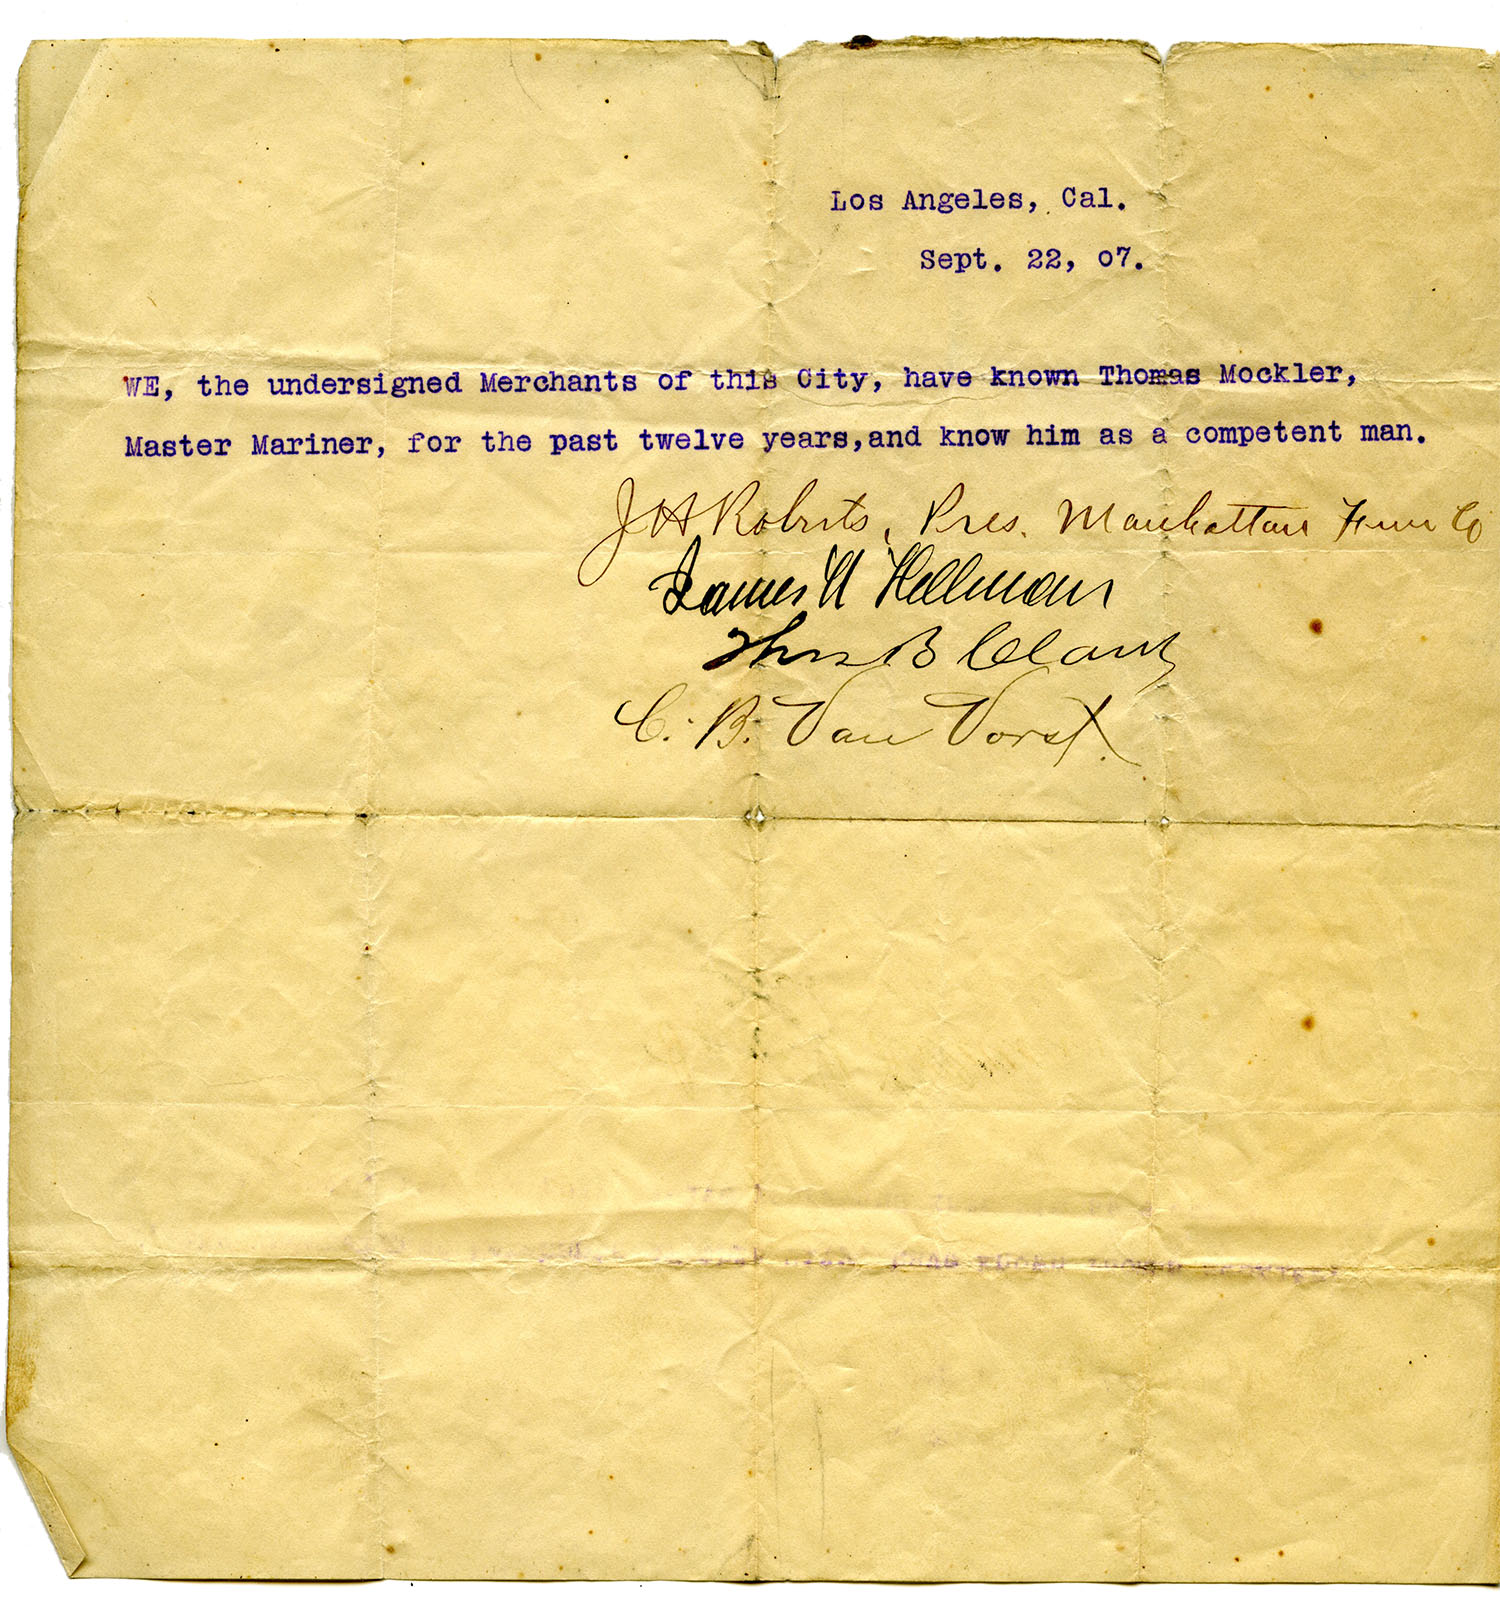 Los Angeles, Cal.
Sept. 22, 07.
WE, the undersigned Merchants of this City, have known Thomas Mockler,
Master Mariner, for the past twelve years,and know him as a competent man.
J H Roberts, Pres. Manhattan Co
James W Hellman
Thos B Clark
C. B. Van Vorst.